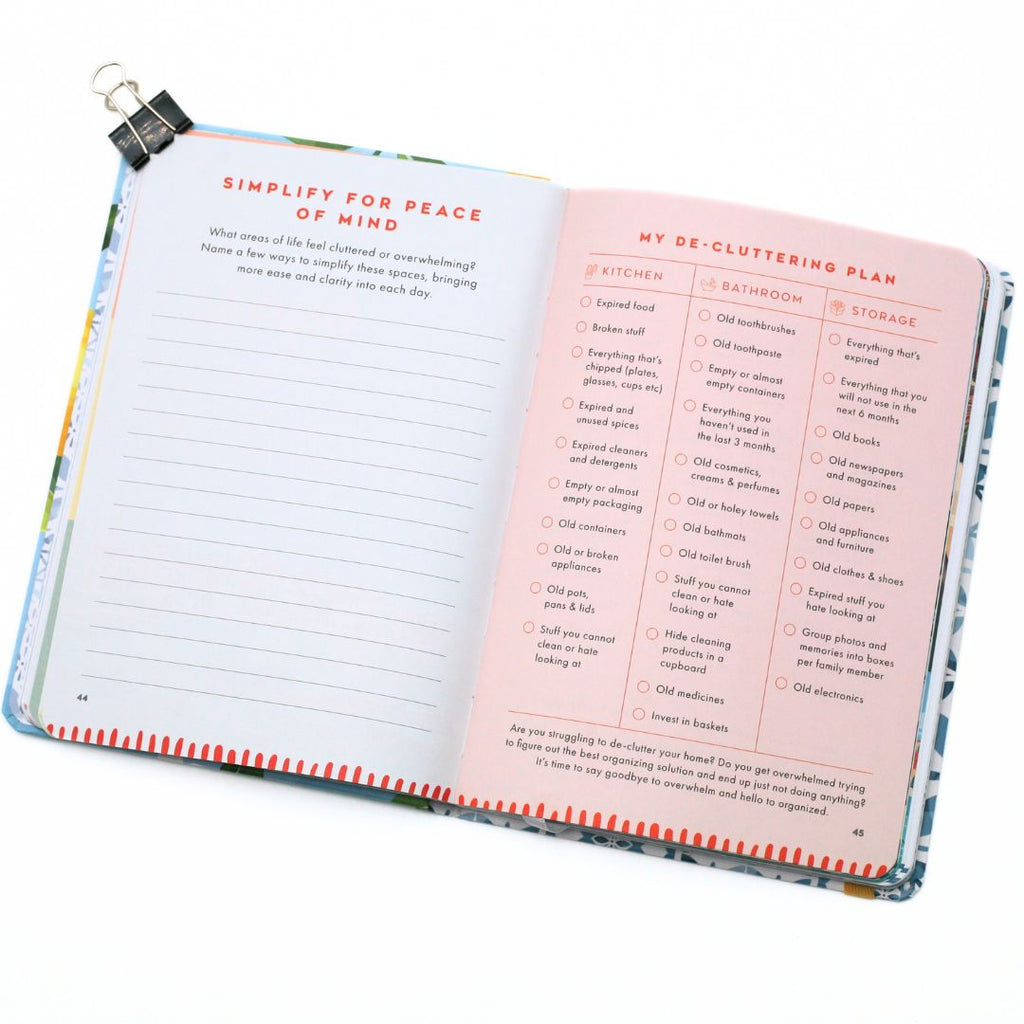 SIMPLIFY FOR PEACE
OF MIND
What areas of life feel cluttered or overwhelming?
Name a few ways to simplify these spaces, bringing
more ease and clarity into each day.
44
MY DE-CLUTTERING PLAN
KITCHEN
Expired food
Broken stuff
Everything that's
chipped (plates,
glasses, cups etc)
Expired and
unused spices
Expired cleaners
and detergents
Empty or almost
empty packaging
Old containers
Old or broken
appliances
Old pots,
pans & lids
Stuff you cannot
clean or hate
looking at
BATHROOM
Old toothbrushes
Old toothpaste
Empty or almost
empty containers
Everything you
haven't used in
the last 3 months
Old cosmetics,
creams & perfumes
Old or holey towels
Old bathmats
Old toilet brush
Stuff you cannot
clean or hate
looking at
Hide cleaning
products in a
cupboard
Old medicines
Invest in baskets
STORAGE
Everything that's
expired
Everything that you
will not use in the
next 6 months
Old books
Old newspapers
and magazines
Old papers
Old appliances
and furniture
Old clothes & shoes
Expired stuff you
hate looking at
Group photos and
memories into boxes
per family member
Old electronics
Are you struggling to de-clutter your home? Do you get overwhelmed trying
to figure out the best organizing solution and end up just not doing anything?
It's time to say goodbye to overwhelm and hello to organized.
45